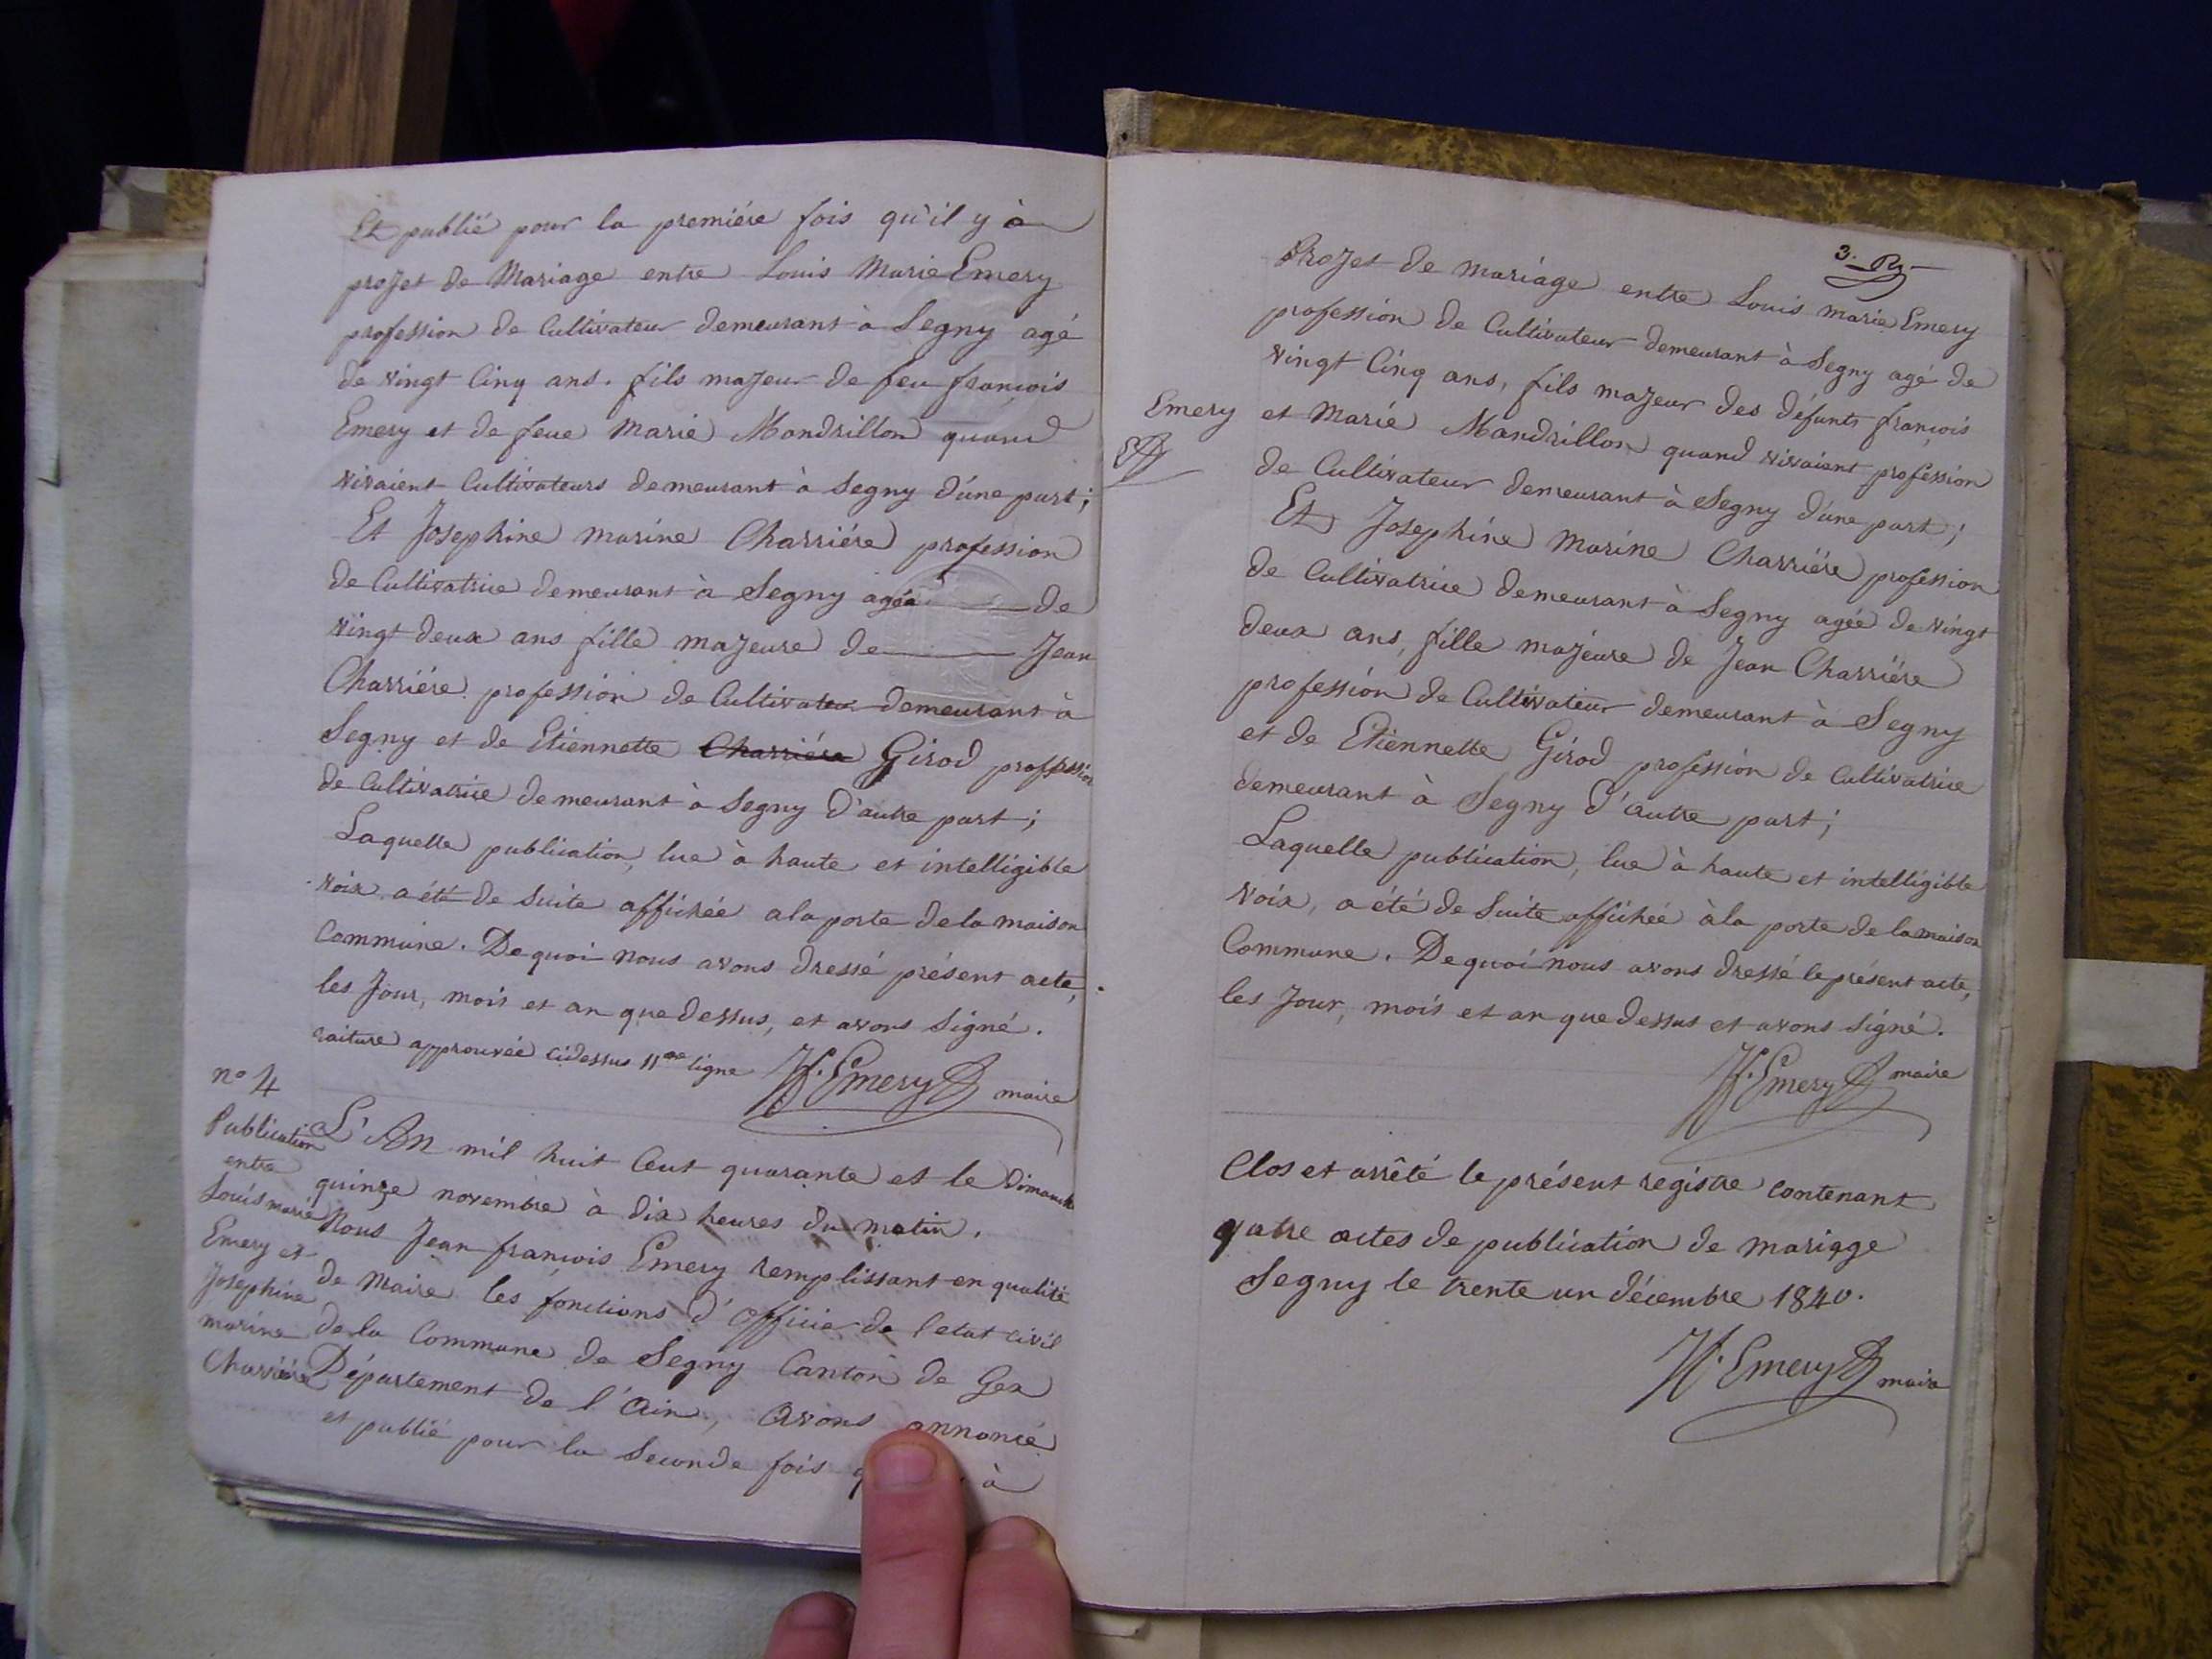 Et publié pour la premiére fois qu'il y à
projet de Mariage entre Louis Marie Emery
profession de Cultivateur demeurant à Segny agé
de vingt Cinq ans. fils majeur de feu françois
Emery et de feue Marie Mandrillon quand
vivaient Cultivateurs demeurant à Segny d'une part;
Et Josephine marine Charriére profession
de Cultivatrice demeurant à Segny agée de
vingt deux ans fille majeure de Jean
Charriére profession de Cultivateur demeurant à
Segny et de Etiennette Charriére Girod profession
de Cultivatrice demeurant à Segny d'autre part;
Laquelle publication, lue à haute et intelligible
voix a été de suite affichée a la porte de la maison
Commune. De quoi nous avons dressé présent acte,
les Jour, mois et an que dessus, et avons signé.
raiture approuvée cidessus 11me ligne Jf. Emery maire
no 4
Publication
entre
Louis marie
Emery et
Josephine
marine
Charriére
L'An mil huit Cent quarante et le Dimanche
quinze novembre à dix heures du matin.
Nous Jean françois Emery remplissant en qualité
de Maire les fonctions d'officier de l'etat civil
de la Commune de Segny Canton de Gex
Département de l'Ain, avons annoncé
et publié pour la Seconde fois à
3.
Projet de mariage entre Louis marie Emery
profession de Cultivateur demeurant à Segny agé de
vingt Cinq ans, fils majeur des défunts françois
Emery
et Marie Mandrillon quand vivaient profession
de Cultivateur demeurant à Segny d'une part;
Et Josephine Marine Charriére profession
de Cultivatrice demeurant à Segny agée de vingt
deux ans, fille majeure de Jean Charriére
profession de Cultivateur demeurant à Segny
et de Etiennette Girod profession de Cultivatrice
demeurant à Segny d'autre part;
Laquelle publication, lue à haute et intelligible
voix, a été de suite affichée à la porte de la maison
Commune. De quoi nous avons dressé le présent acte,
les Jour, mois et an que dessus et avons signé.
Jf. Emery maire
Clos et arrêté le présent registre contenant
quatre actes de publication de mariage
Segny le trente un décembre 1840.
Jf. Emery maire